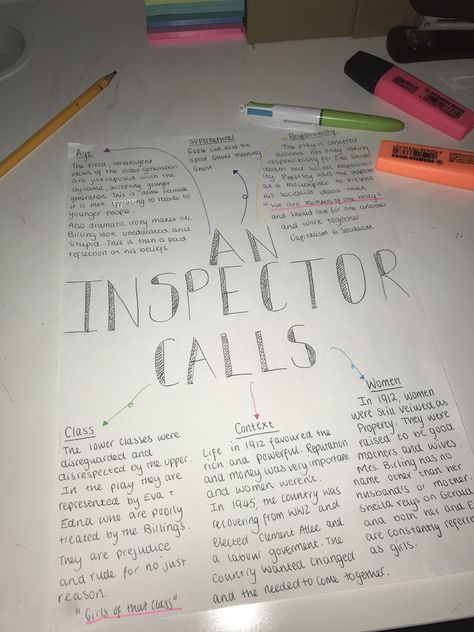 Age
The fixed, intransigent
views of the older generation
are juxtaposed with the
dynamic, accepting younger
generation. This is done because
it is more appealing to relate to
younger people.
Also dramatic irony makes Mr.
Birling look uneducated and
stupid. This is then a bad
reflection on his beliefs
Supernatural
Goole can also be
spelt Ghoul meaning
Ghost
Responsibility
The play is centered
around not only taking
responsibility for Eva Smith's
death but social responsibil
ity. Priestley uses the inspector
as a mouthpiece to present
his socialist ideals that
"we are members of one body"
and should care for one another
and work together.
Capitalism V. Socialism
AN
INSPECTOR
CALLS
Class
The lower classes were
disreguarded and
disrespected by the upper.
In the play they are
represented by Eva +
Edna who are poorly
treated by the Birlings.
They are prejudice
and rude for no just
reason.
"Girls of that class"
Context
Life in 1912 favoured the
rich and powerful. Reputation
and money was very important
and women weren't.
In 1945, the country was
recovering from WW2 and
elected Clement Atlee and
a labour goverment. The
country wanted changed
and the needed to come together.
Women
In 1912, women
were still veiwed as
Property. They were
raised to be good
mothers and wives.
Mrs. Birling has no
name other than her
husband's or mother.
Sheila relys on Gerald
and both her and E
are constantly referre
as girls.